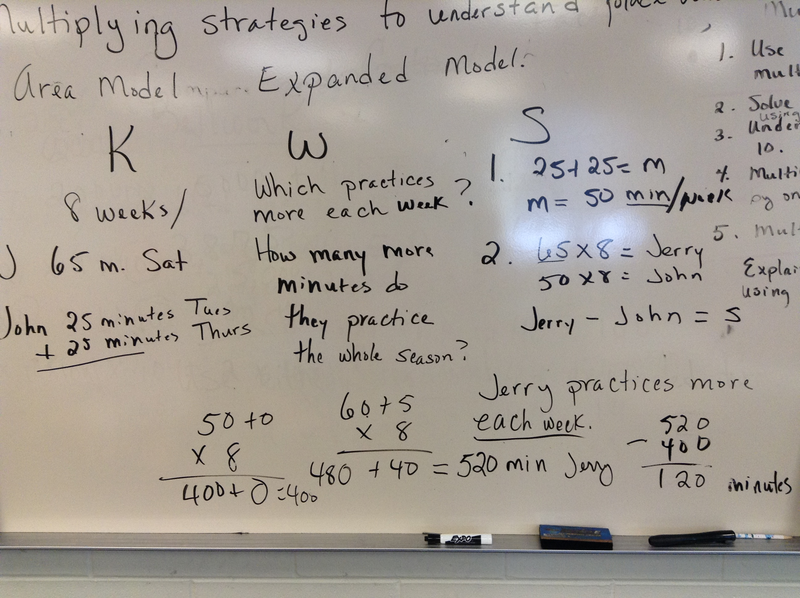 Multiplying strategies to understand place
Area Model Expanded Model.
K
8 weeks/
J 65 m. Sat
John 25 minutes Tues
+ 25 minutes Thurs
W
Which practices
more each week?
How many more
minutes do
they practice
the whole season?
S
1. 25+25= m
m= 50 min/week
2. 65 x 8 = Jerry
50 x 8 = John
Jerry - John = S
Jerry practices more
each week.
50 + 0
x 8
400 + 0 = 400
60 + 5
x 8
480 + 40 = 520 min Jerry
520
- 400
120 minutes
1. Use
mult
2. Solve
using
3. Under
10.
4. Multi
by on
5. Mult
Explai
using
EXPO